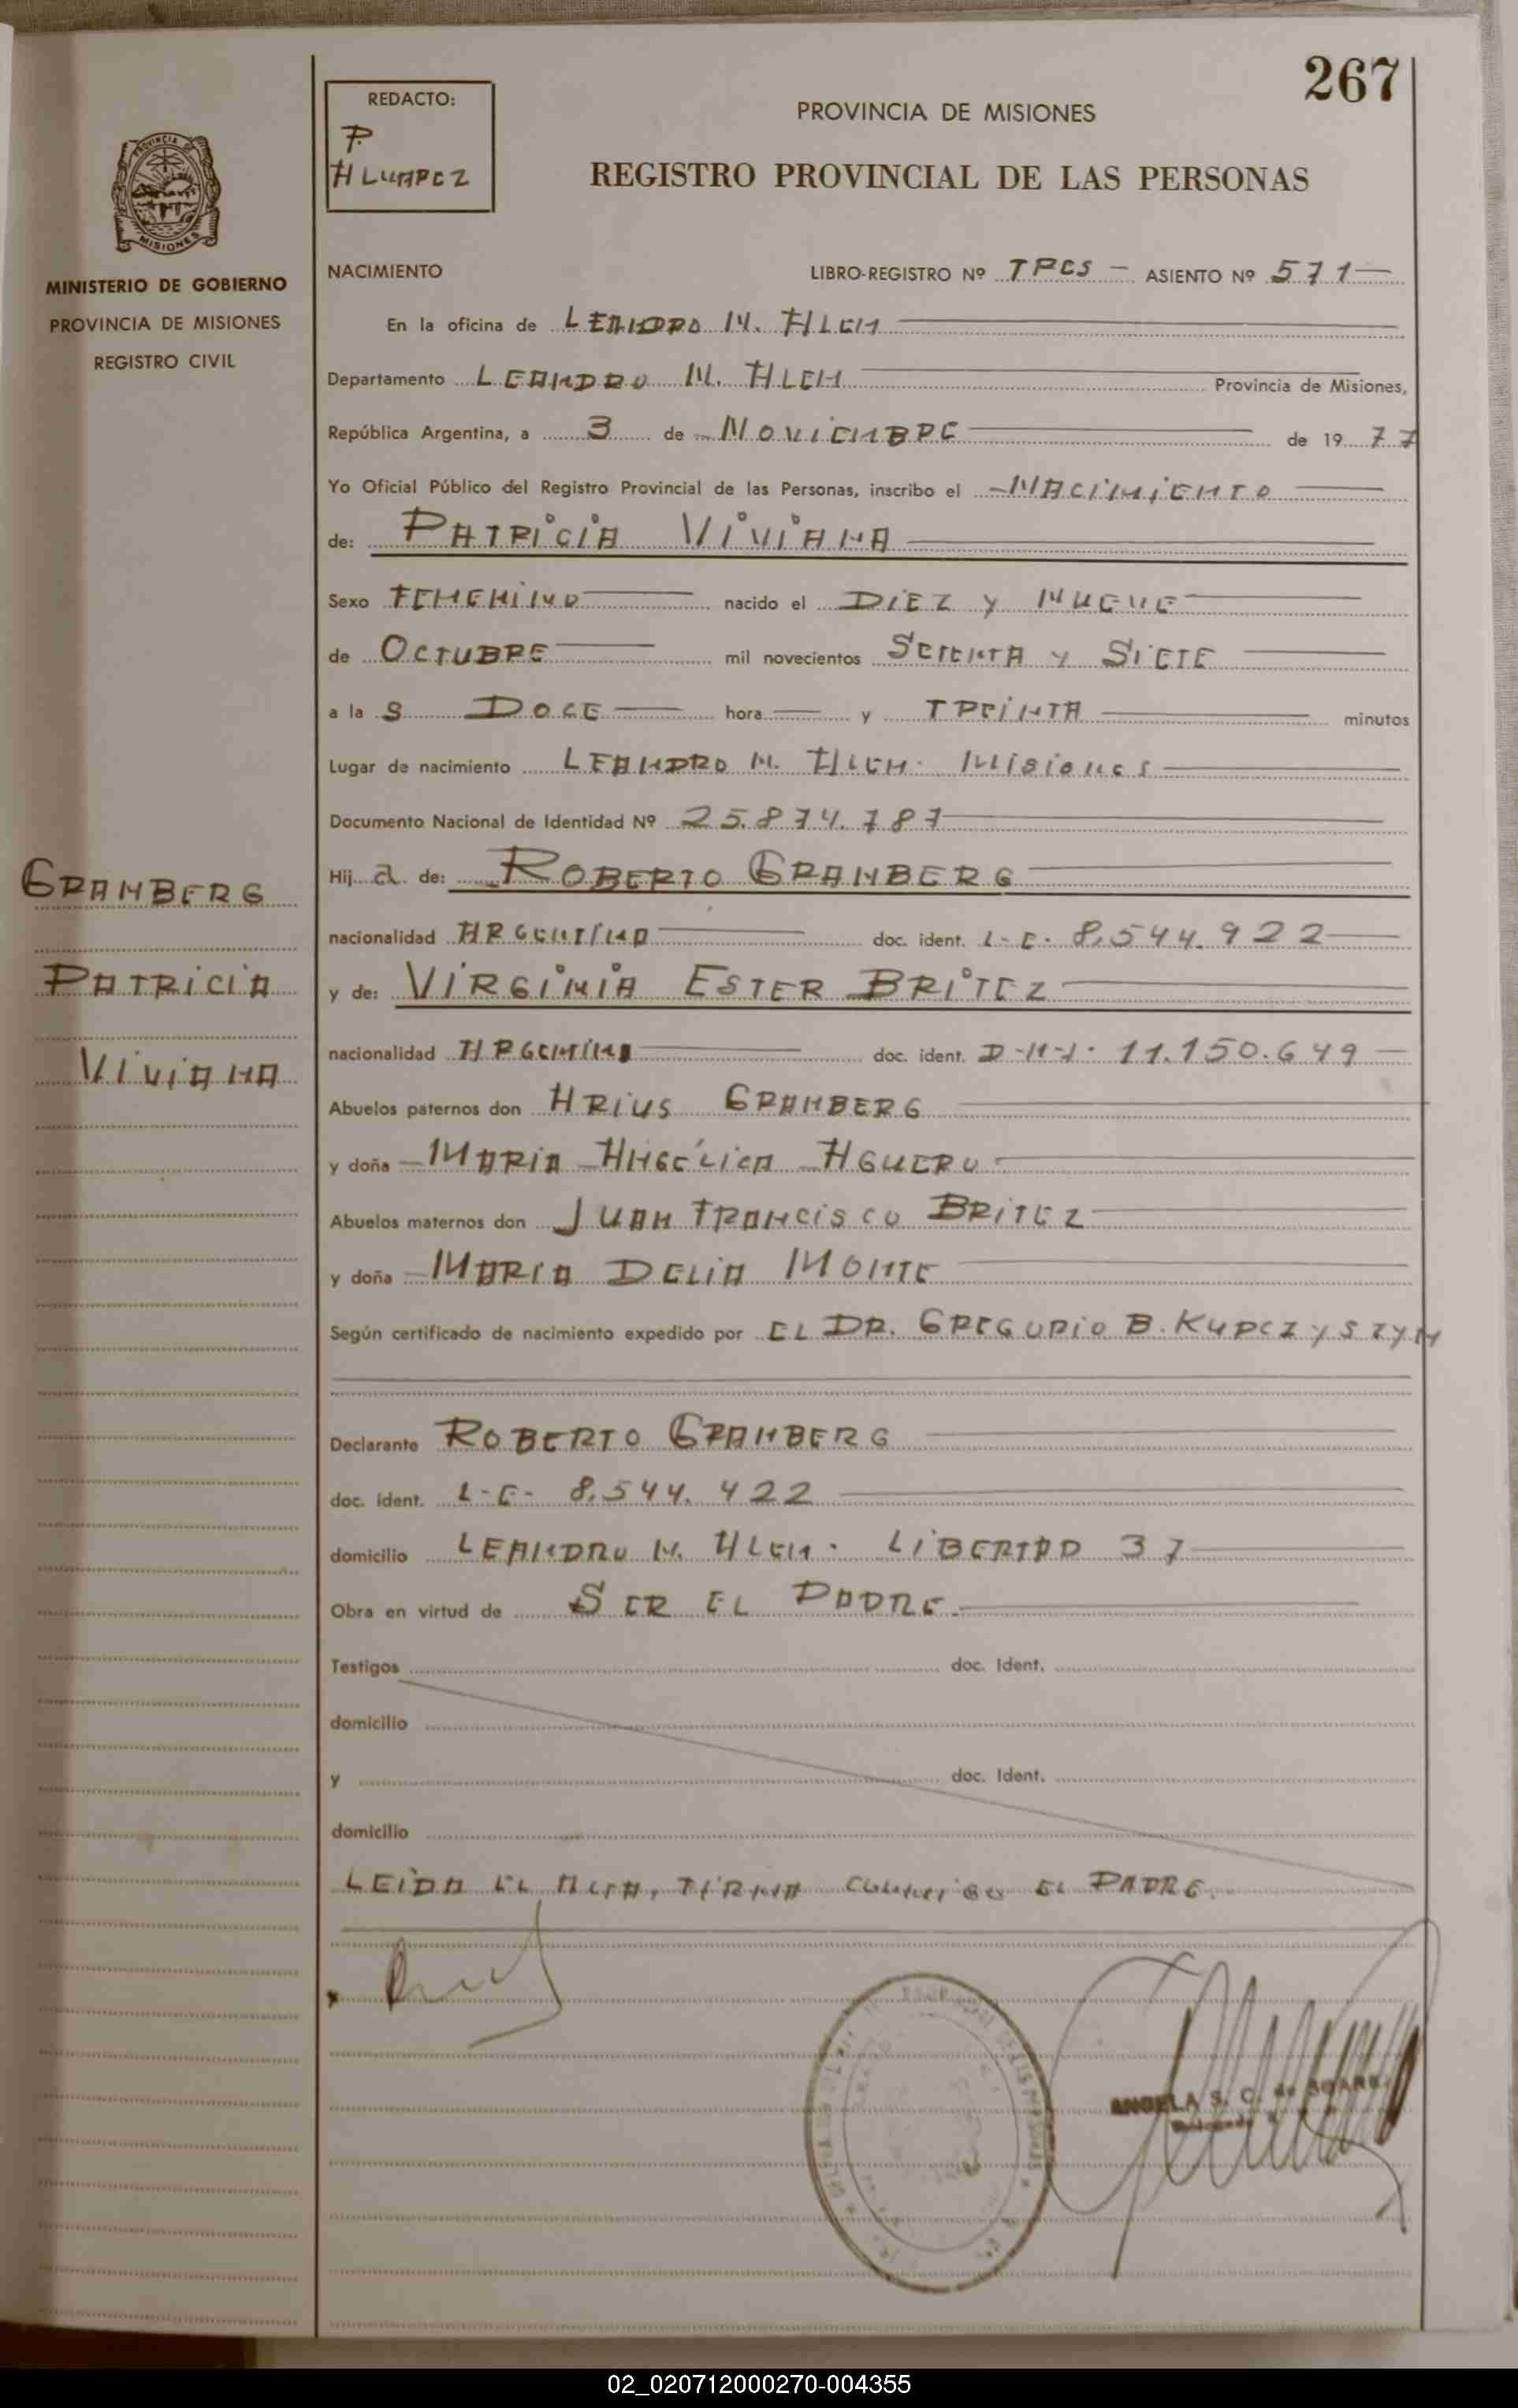 267
REDACTO:
P.
ALVAREZ
PROVINCIA DE MISIONES
REGISTRO PROVINCIAL DE LAS PERSONAS
PROVINCIA DE
MISIONES
MINISTERIO DE GOBIERNO
PROVINCIA DE MISIONES
REGISTRO CIVIL
NACIMIENTO LIBRO-REGISTRO Nº TRES - ASIENTO Nº 571
En la oficina de LEANDRO N. ALEM
Departamento LEANDRO N. ALEM Provincia de Misiones,
República Argentina, a 3 de NOVIEMBRE de 19 77
Yo Oficial Público del Registro Provincial de las Personas, inscribo el NACIMIENTO
de: PATRICIA VIVIANA
Sexo FEMENINO nacido el DIEZ Y NUEVE
de OCTUBRE mil novecientos SETENTA Y SIETE
a la S DOCE hora y TREINTA minutos
Lugar de nacimiento LEANDRO N. ALEM. Misiones
Documento Nacional de Identidad Nº 25.874.787
Hij a de: ROBERTO GRAMBERG
nacionalidad ARGENTINO doc. ident. L-E- 8.544.922
y de: VIRGINIA ESTER BRITEZ
nacionalidad ARGENTINA doc. ident. D-N-I- 11.150.649
Abuelos paternos don ARIUS GRAMBERG
y doña MARIA ANGÉLICA AGUERO
Abuelos maternos don JUAN FRANCISCO BRITEZ
y doña MARIA DELIA MONTE
Según certificado de nacimiento expedido por EL DR. GREGORIO B. KUPCZYSZYN
Declarante ROBERTO GRAMBERG
doc. ident. L-E- 8.544.422
domicilio LEANDRO N. ALEM. LIBERTAD 37
Obra en virtud de SER EL PADRE.
Testigos doc. Ident.
domicilio
y doc. Ident.
domicilio
LEIDA EL ACTA, FIRMA CONMIGO EL PADRE.
GRAMBERG
PATRICIA
VIVIANA
ANGELA S. C. de
02_020712000270-004355